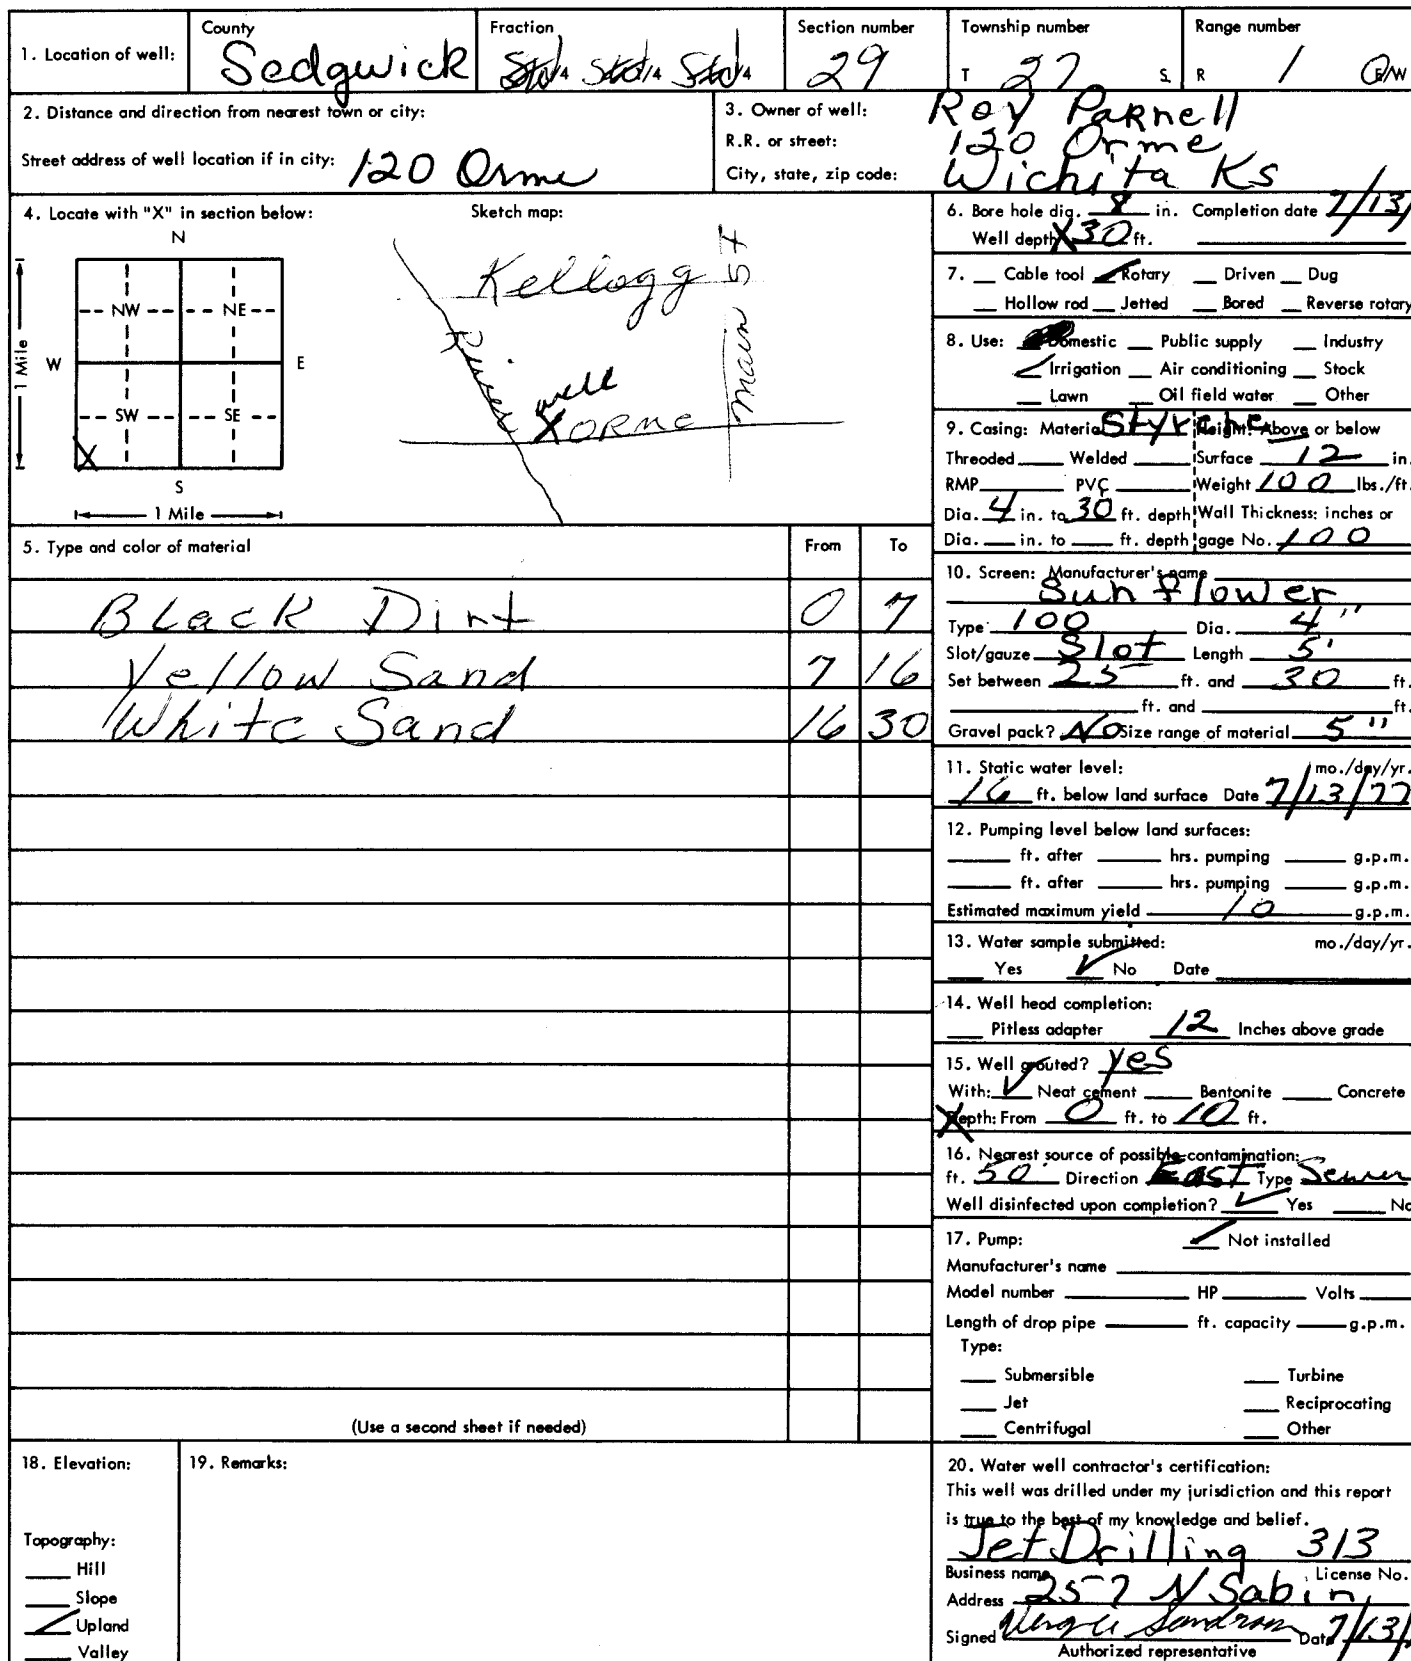 1. Location of well:
County
Sedgwick
Fraction
1/4 1/4 1/4
Section number
29
Township number
T 27 S.
Range number
R 1 E/W
2. Distance and direction from nearest town or city:
Street address of well location if in city: 120 Orme
3. Owner of well: Roy Parnell
R.R. or street: 120 Orme
City, state, zip code: Wichita Ks
4. Locate with "X" in section below:
N
NW NE
W E
SW SE
X
S
1 Mile
1 Mile
Sketch map:
Kellogg
Main St
River
well
X ORME
5. Type and color of material From To
Black Dirt 0 7
Yellow Sand 7 16
White Sand 16 30
(Use a second sheet if needed)
6. Bore hole dia. 8 in. Completion date 7/13/
Well depth X 30 ft.
7. Cable tool ✓ Rotary Driven Dug
Hollow rod Jetted Bored Reverse rotary
8. Use: Domestic Public supply Industry
✓ Irrigation Air conditioning Stock
Lawn Oil field water Other
9. Casing: Material Styrene Height: Above or below
Threaded Welded Surface 12 in.
RMP PVC Weight 100 lbs./ft.
Dia. 4 in. to 30 ft. depth Wall Thickness: inches or
Dia. in. to ft. depth gage No. 100
10. Screen: Manufacturer's name
Sunflower
Type 100 Dia. 4"
Slot/gauze Slot Length 5'
Set between 25 ft. and 30 ft.
ft. and ft.
Gravel pack? No Size range of material 5"
11. Static water level: mo./day/yr.
16 ft. below land surface Date 7/13/77
12. Pumping level below land surfaces:
ft. after hrs. pumping g.p.m.
ft. after hrs. pumping g.p.m.
Estimated maximum yield 10 g.p.m.
13. Water sample submitted: mo./day/yr.
Yes ✓ No Date
14. Well head completion:
Pitless adapter 12 Inches above grade
15. Well grouted? yes
With: ✓ Neat cement Bentonite Concrete
X Depth: From 0 ft. to 10 ft.
16. Nearest source of possible contamination:
ft. 50 Direction East Type Sewer
Well disinfected upon completion? ✓ Yes No
17. Pump: ✓ Not installed
Manufacturer's name
Model number HP Volts
Length of drop pipe ft. capacity g.p.m.
Type:
Submersible Turbine
Jet Reciprocating
Centrifugal Other
18. Elevation:
Topography:
Hill
Slope
✓ Upland
Valley
19. Remarks:
20. Water well contractor's certification:
This well was drilled under my jurisdiction and this report
is true to the best of my knowledge and belief.
Jet Drilling 313
Business name License No.
Address 257 N Sabin
Signed Date 7/13/
Authorized representative